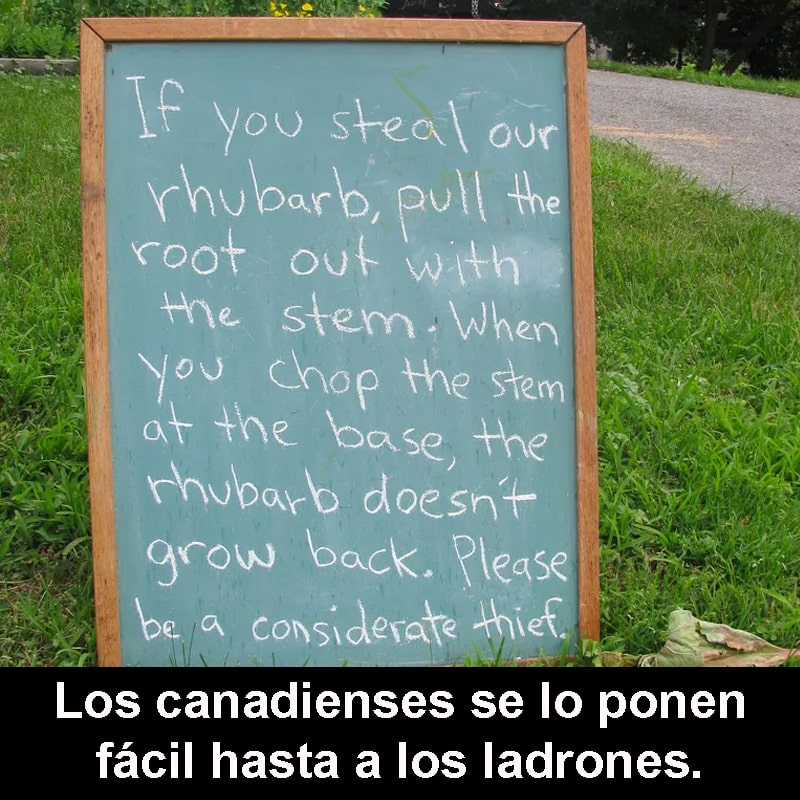 If you steal our
rhubarb, pull the
root out with
the stem. When
you chop the stem
at the base, the
rhubarb doesn't
grow back. Please
be a considerate thief.
Los canadienses se lo ponen
fácil hasta a los ladrones.